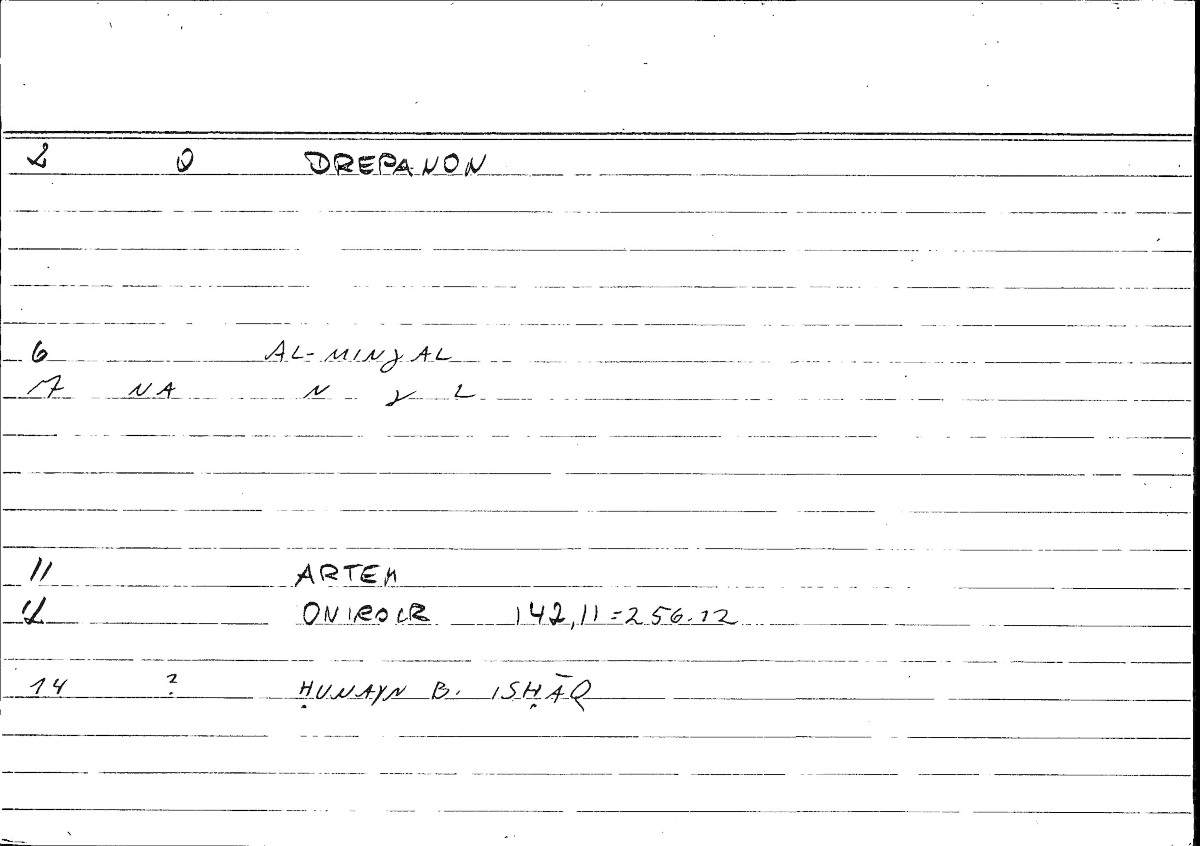 2 0 DREPANON
6 AL-MINJAL
7 NA N J L
11 ARTEM
12 ONIROCR 142,11=256.12
14 ? ḤUNAYN B. ISḤĀQ